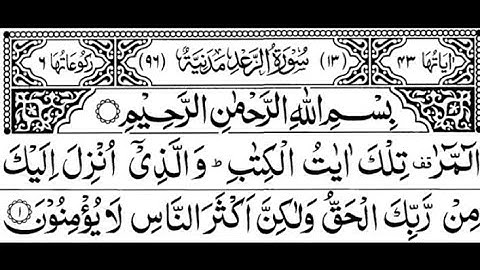 اٰیاتُهَا ۴۳ (۱۳) سُوْرَةُ الرَّعْدِ مَدَنِیَّةٌ (۹۶) رُکُوْعَاتُهَا ۶
بِسْمِ اللّٰهِ الرَّحْمٰنِ الرَّحِیْمِ
الٓمّٓرٰ قف تِلْكَ اٰیٰتُ الْكِتٰبِ ؕ وَ الَّذِیْۤ اُنْزِلَ اِلَیْكَ
مِنْ رَّبِّكَ الْحَقُّ وَلٰكِنَّ اَكْثَرَ النَّاسِ لَا یُؤْمِنُوْنَ ۱